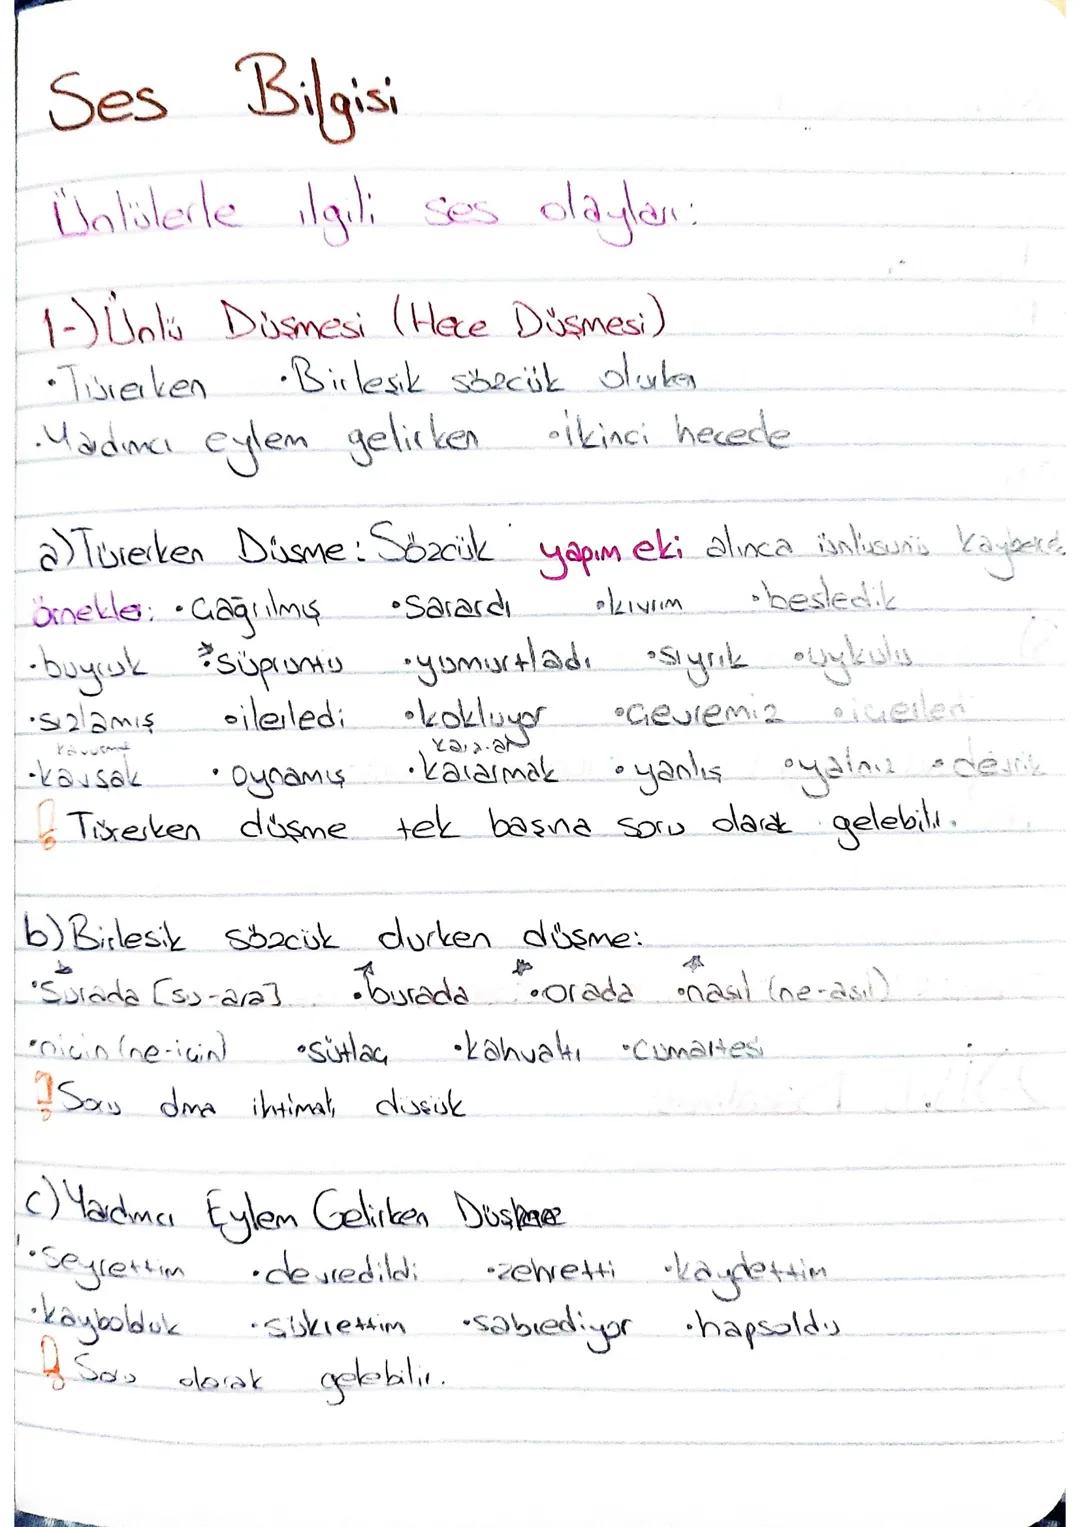 Ses Bilgisi
Ünlülerle ilgili ses olayları:
1-) Ünlü Düşmesi (Hece Düşmesi)
• Türerken • Birleşik sözcük olurken
• Yardımcı eylem gelirken • ikinci hecede
a) Türerken Düşme: Sözcük yapım eki alınca ünlüsünü kaybeder.
Örnekler: • Çağrılmış • Sarardı • kıvrım • besledik
• buyruk • süprüntü • yumurtladı • sıyrık • uykulu
• sızlamış • ilerledi • kokluyor • çevremiz • içerlen
kavuşmak kara-ar
• kavşak • oynamış • kararmak • yanlış • yalnız • devrik
! Türerken düşme tek başına soru olarak gelebilir.
b) Birleşik sözcük olurken düşme:
• Şurada [şu-ara] • burada • orada • nasıl (ne-asıl)
• niçin (ne-için) • sütlaç • kahvaltı • Cumartesi
! Soru olma ihtimali düşük
c) Yardımcı Eylem Gelirken Düşme
• seyrettim • devredildi • zehretti • kaydettim
• kaybolduk • şükrettim • sabrediyor • hapsoldu
! Soru olarak gelebilir.